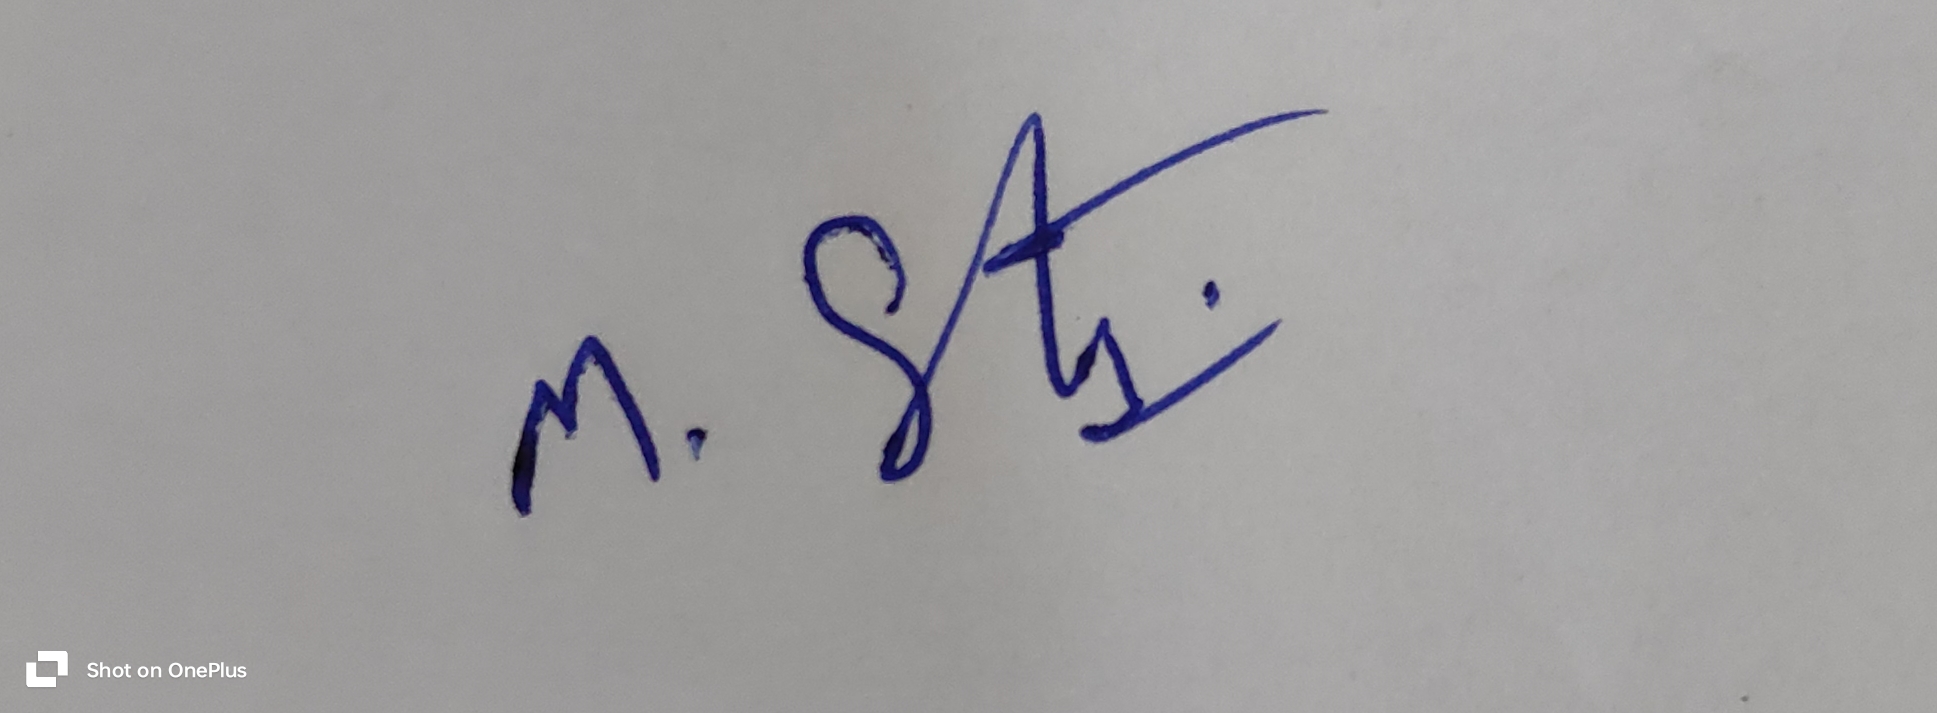 M. Sti
Shot on OnePlus